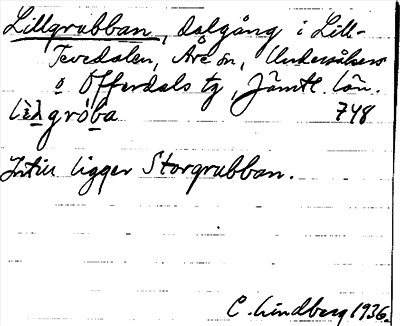 Lillgrubban, dalgång i Lill-
Tevedalen, Åre sn, Undersåkers
o Offerdals tg, Jämtl. län.
lìlgròba 748
Intill ligger Storgrubban.
C. Lindberg 1936.